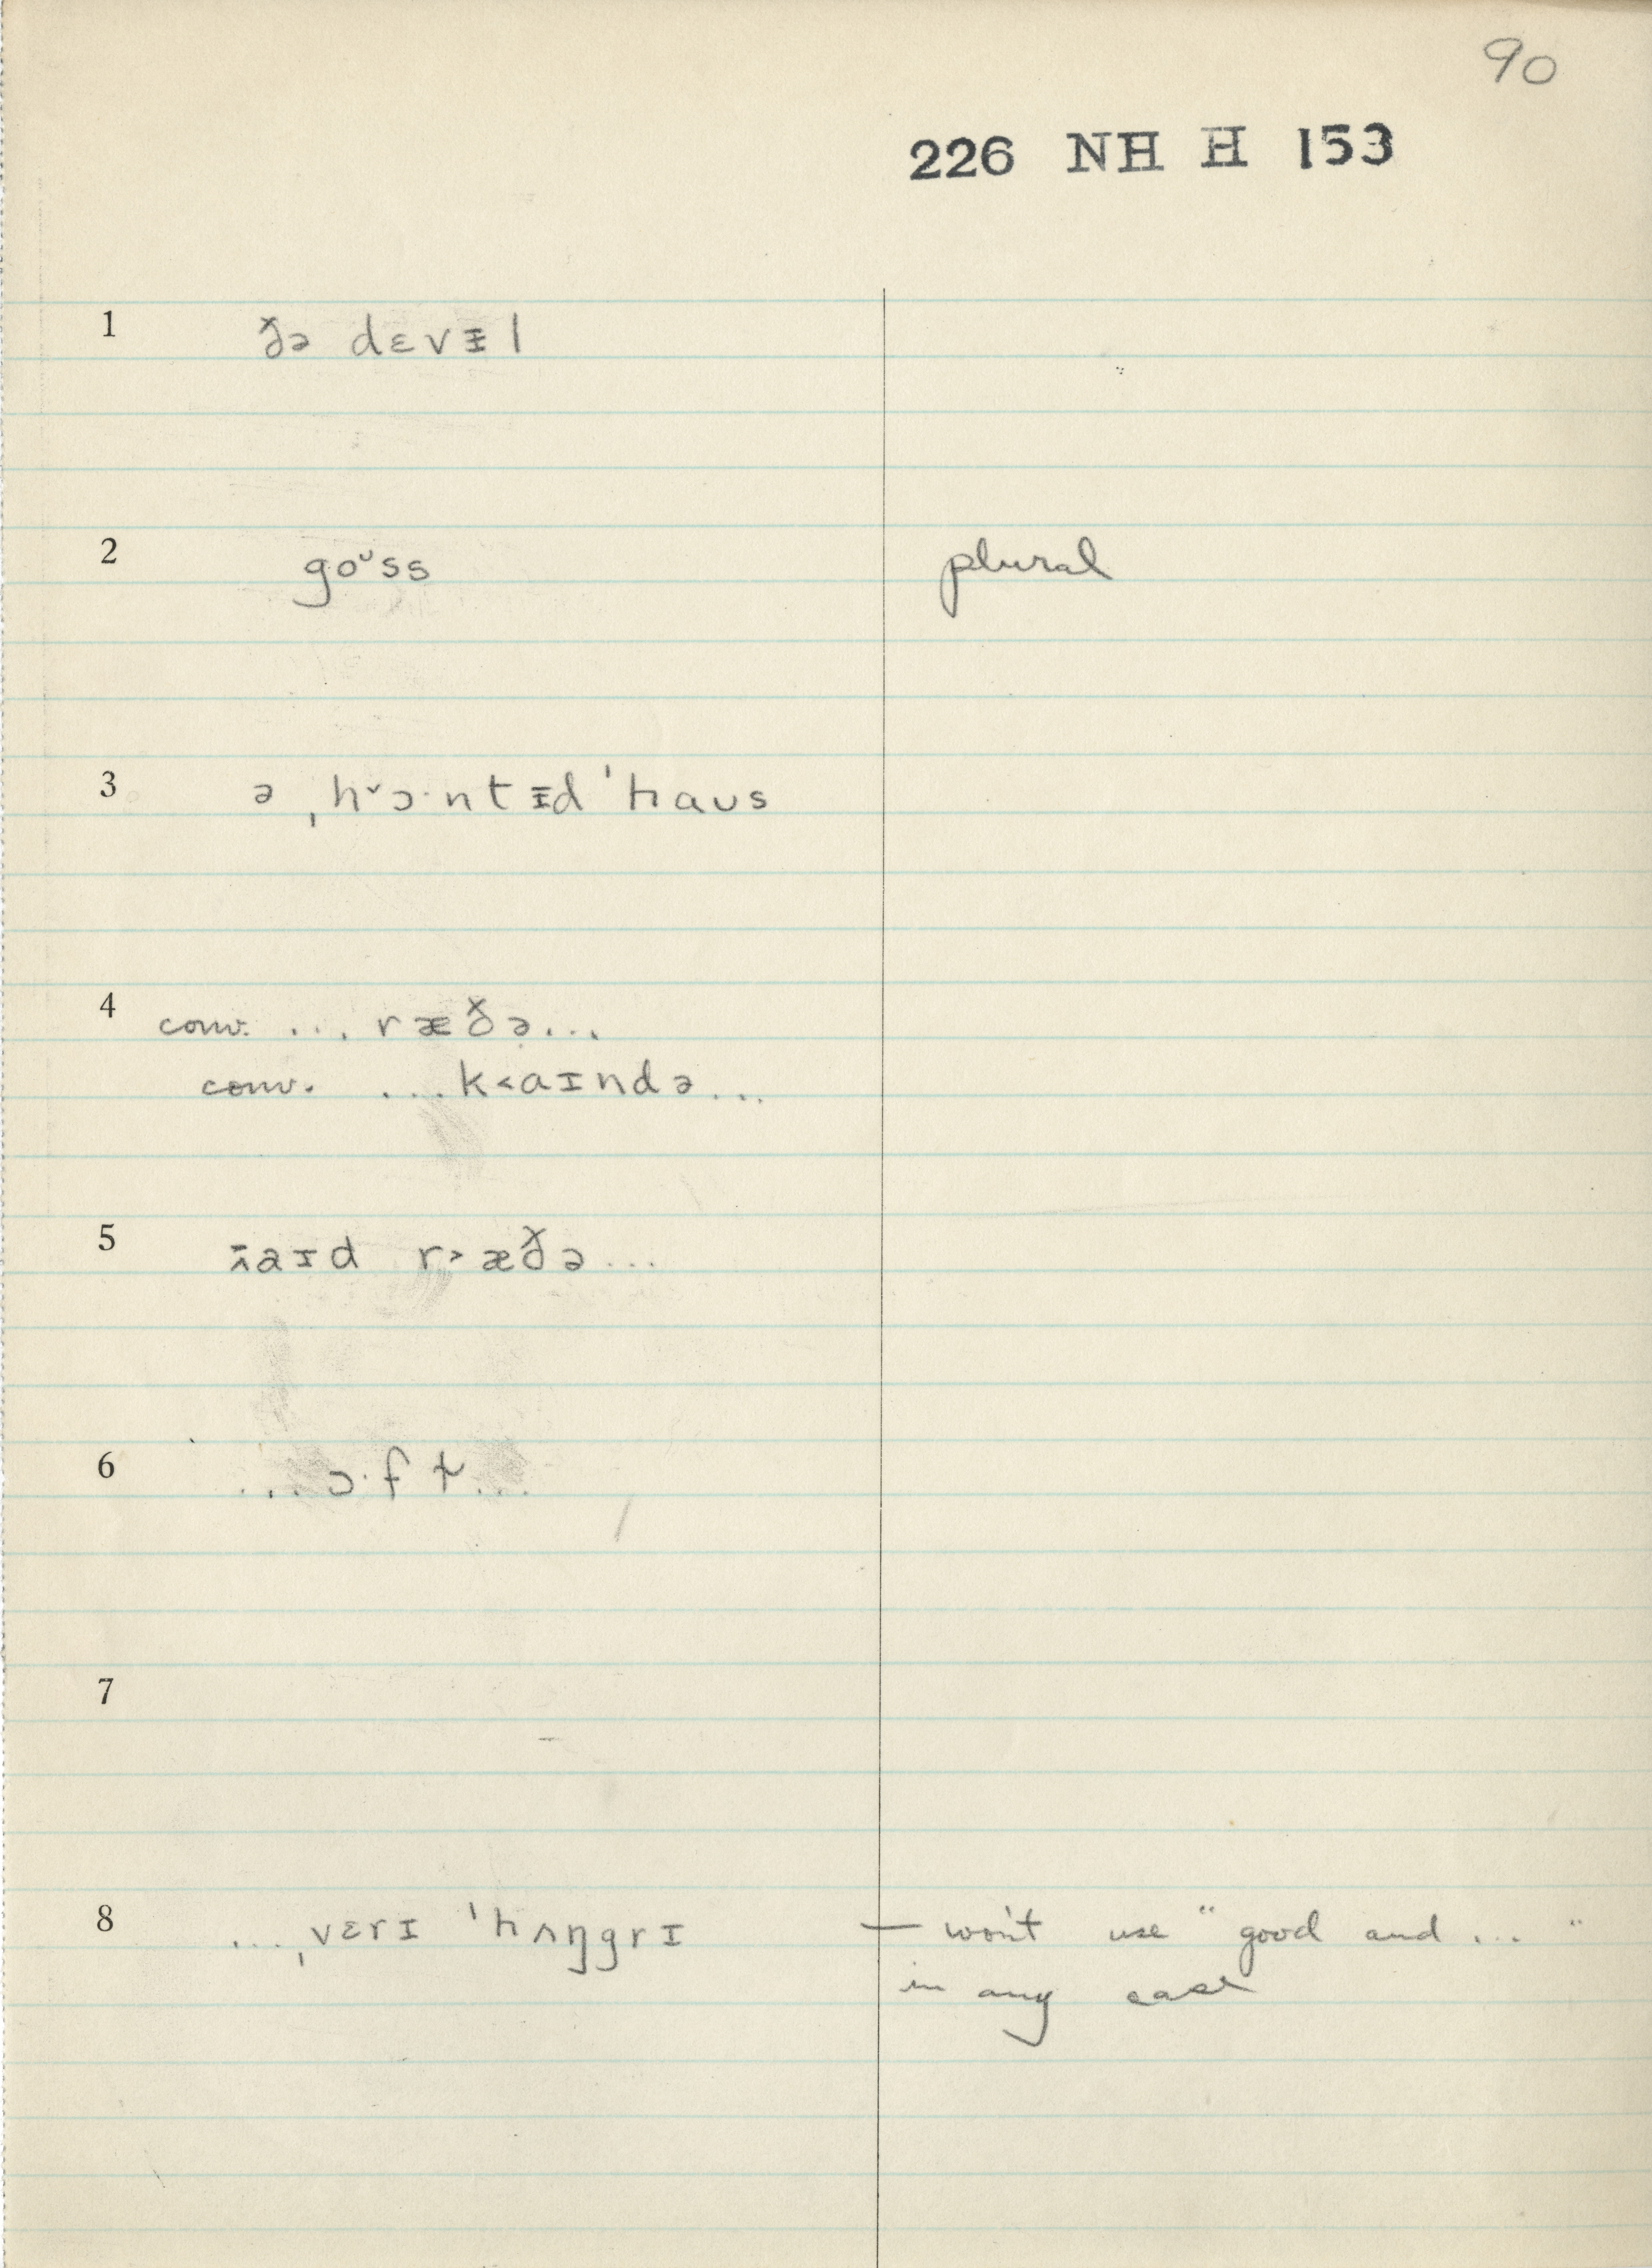 90
226 NH H 153
1 ðə dɛvɪ̵l
2 goᵕss plural
3 ə ˌhˇɔ·ntɪ̵d ˈhaʊs
4 conv. ... ræðə...
conv. ...k˂aɪndə...
5 aɪd r˃æðə...
6 ...ɔ·f t...
7
8 ...ˌvɛrɪ ˈhʌŋgrɪ — won't use "good and ..."
in any case